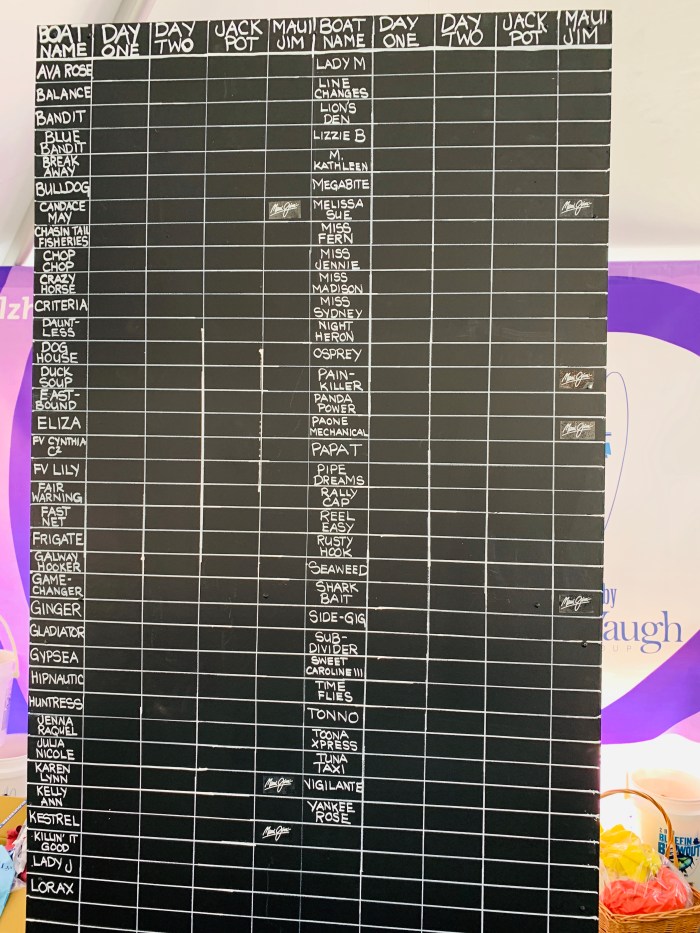 BOAT NAME DAY ONE DAY TWO JACK POT MAUI JIM BOAT NAME DAY ONE DAY TWO JACK POT MAUI JIM
AVA ROSE LADY M
BALANCE LINE CHANGES
BANDIT LION'S DEN
BLUE BANDIT LIZZIE B
BREAK AWAY M. KATHLEEN
BULLDOG MEGABITE
CANDACE MAY Maui Jim MELISSA SUE Maui Jim
CHASIN TAIL FISHERIES MISS FERN
CHOP CHOP MISS JENNIE
CRAZY HORSE MISS MADISON
CRITERIA MISS SYDNEY
DAUNT-LESS NIGHT HERON
DOG HOUSE OSPREY
DUCK SOUP PAIN-KILLER Maui Jim
EAST-BOUND PANDA POWER
ELIZA PAONE MECHANICAL Maui Jim
FV CYNTHIA C2 PAPA T
FV LILY PIPE DREAMS
FAIR WARNING RALLY CAP
FAST NET REEL EASY
FRIGATE RUSTY HOOK
GALWAY HOOKER SEAWEED
GAME-CHANGER SHARK BAIT Maui Jim
GINGER SIDE-GIG
GLADIATOR SUB-DIVIDER
GYPSEA SWEET CAROLINE III
HIPNAUTIC TIME FLIES
HUNTRESS TONNO
JENNA RAQUEL TOONA XPRESS
JULIA NICOLE TUNA TAXI
KAREN LYNN Maui Jim VIGILANTE
KELLY ANN YANKEE ROSE
KESTREL Maui Jim
KILLIN' IT GOOD
LADY J
LORAX
lzh
by
augh